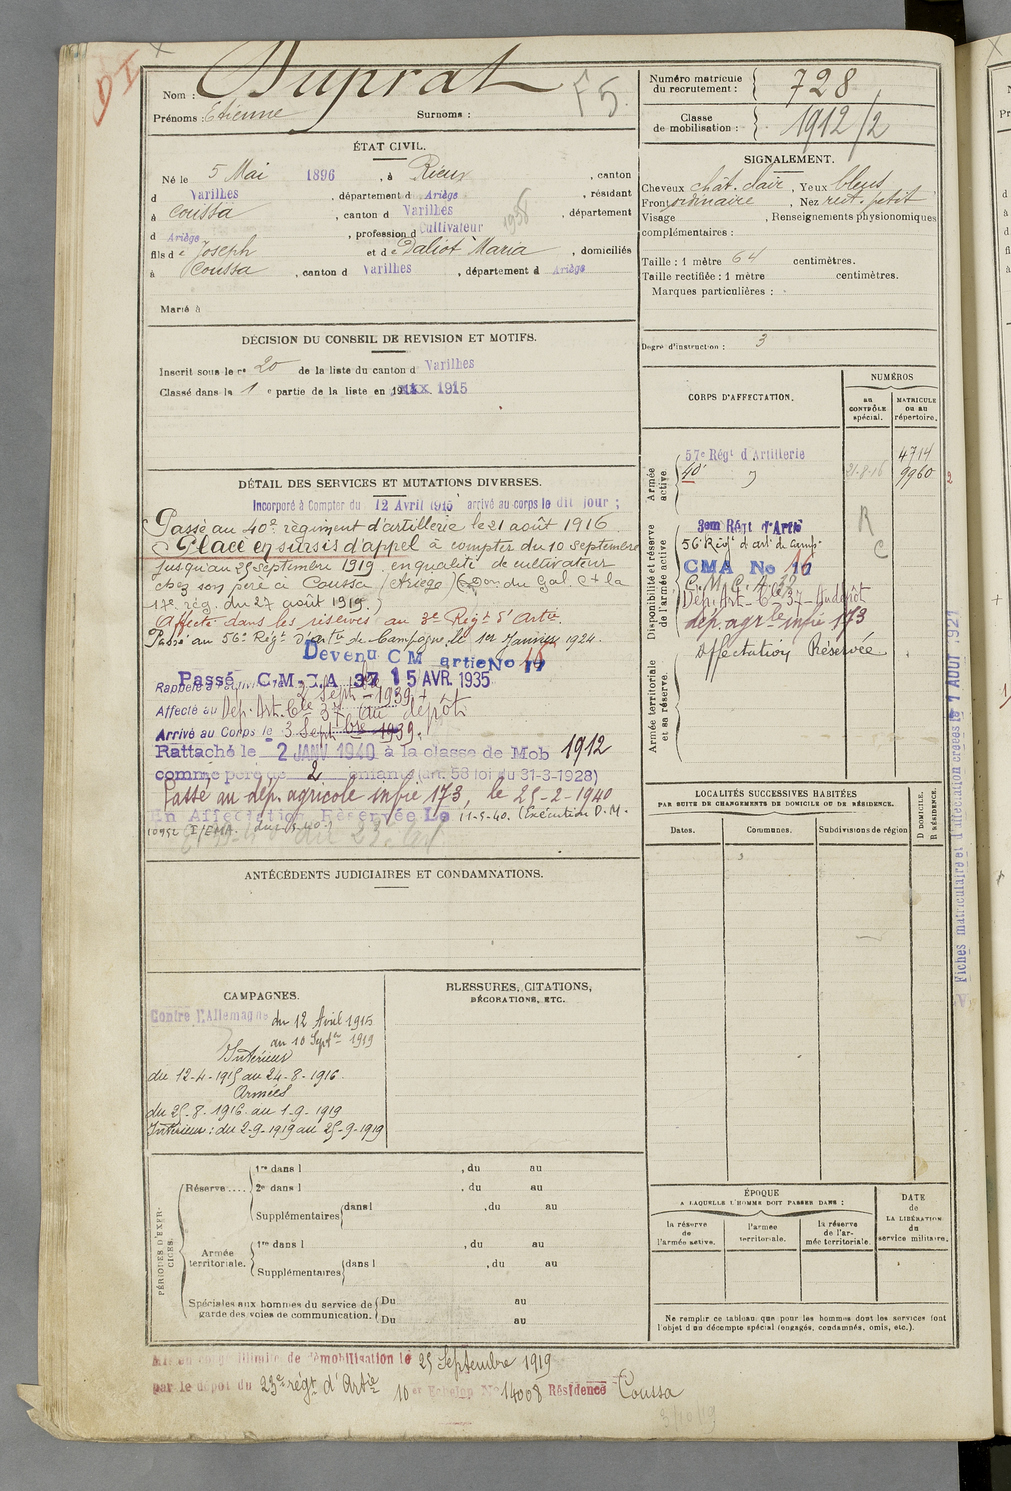 DI
Nom : Duprat
F 5.
Prénoms : Etienne Surnoms :
ÉTAT CIVIL.
Né le 5 Mai 1896, à Rieux, canton
d Varilhes, département d Ariège, résidant
à Coussa, canton d Varilhes, département
d Ariège, profession d Cultivateur 1938
fils de Joseph et de Daliot Maria, domiciliés
à Coussa, canton d Varilhes, département d Ariège
Marié à
DÉCISION DU CONSEIL DE REVISION ET MOTIFS.
Inscrit sous le n° 20 de la liste du canton d Varilhes
Classé dans la 1 e partie de la liste en 191 1915
DÉTAIL DES SERVICES ET MUTATIONS DIVERSES.
Incorporé à Compter du 12 Avril 1915 arrivé au corps le dit jour ;
Passé au 40e régiment d'artillerie le 21 août 1916.
Placé en sursis d'appel à compter du 10 Septembre
jusqu'au 25 septembre 1919 en qualité de cultivateur
chez son père à Coussa (Ariège) (Don du Gal Ct la
17e rég. du 27 août 1919.)
Affecté dans les réserves au 3e Régt d'Artie.
Passé au 56e Régt d'Artie de Campagne le 1er Janvier 1924.
Devenu C M artie No 17 16
Passé C.M.C.A 37 15 AVR. 1935
Rappelé à l'activité le 2 Sept. 1939.
Affecté au Dép. Art. Cie 37 au dépôt
Arrivé au Corps le 3 Septbre 1939.
Rattaché le 2 JANV 1940 à la classe de Mob 1912
comme père de 2 enfants (art. 58 loi du 31-3-1928)
Passé au dép. agricole infie 173, le 25-2-1940
En Affectation Réservée Le 11-5-40. (Exécution D.M.
10952 I/EMA. du
ANTÉCÉDENTS JUDICIAIRES ET CONDAMNATIONS.
CAMPAGNES.
Contre l'Allemagne du 12 Avril 1915
au 10 Septre 1919
Intérieur
du 12-4-1915 au 24-8-1916.
Armées
du 25-8-1916 au 1-9-1919
Intérieur : du 2-9-1919 au 25-9-1919
BLESSURES, CITATIONS,
DÉCORATIONS, ETC.
PÉRIODES D'EXERCICES.
Réserve....
1re dans l , du au
2e dans l , du au
Supplémentaires dans l , du au
Armée territoriale.
1re dans l , du au
Supplémentaires dans l , du au
Spéciales aux hommes du service de garde des voies de communication.
Du au
Du au
Numéro matricule du recrutement : 728
Classe de mobilisation : 1912/2
SIGNALEMENT.
Cheveux chât. clair, Yeux bleus
Front ordinaire, Nez rect. petit
Visage , Renseignements physionomiques
complémentaires :
Taille : 1 mètre 64 centimètres.
Taille rectifiée : 1 mètre centimètres.
Marques particulières :
Degré d'instruction : 3
CORPS D'AFFECTATION.
NUMÉROS
au CONTRÔLE spécial.
MATRICULE ou au répertoire.
Armée active
57e Régt d'Artillerie 4714
40e 21-8-16 9960
2
Disponibilité et réserve de l'armée active
3em Régt d'Artie R
56e Régt d'art. de Camp. C
CMA No 16
C.M.C.A. 37
Dép. Art. Cie 37 Au dépôt
dép. agrle infie 173
Armée territoriale et sa réserve.
Affectation Réservée
LOCALITÉS SUCCESSIVES HABITÉES
PAR SUITE DE CHANGEMENTS DE DOMICILE OU DE RÉSIDENCE.
D DOMICILE.
R RÉSIDENCE.
Dates. Communes. Subdivisions de région
ÉPOQUE
A LAQUELLE L'HOMME DOIT PASSER DANS :
la réserve de l'armée active.
l'armée territoriale.
la réserve de l'armée territoriale.
DATE de LA LIBÉRATION du service militaire.
Ne remplir ce tableau que pour les hommes dont les services font
l'objet d'un décompte spécial (engagés, condamnés, omis, etc.).
Fiches matriculaire et d'affectation créées le 7 AOUT 1927
Mis en congé illimité de démobilisation le 25 Septembre 1919
par le dépôt du 23e régt d'Artie 10er Echelon No 14008 Résidence Coussa
3/10/19